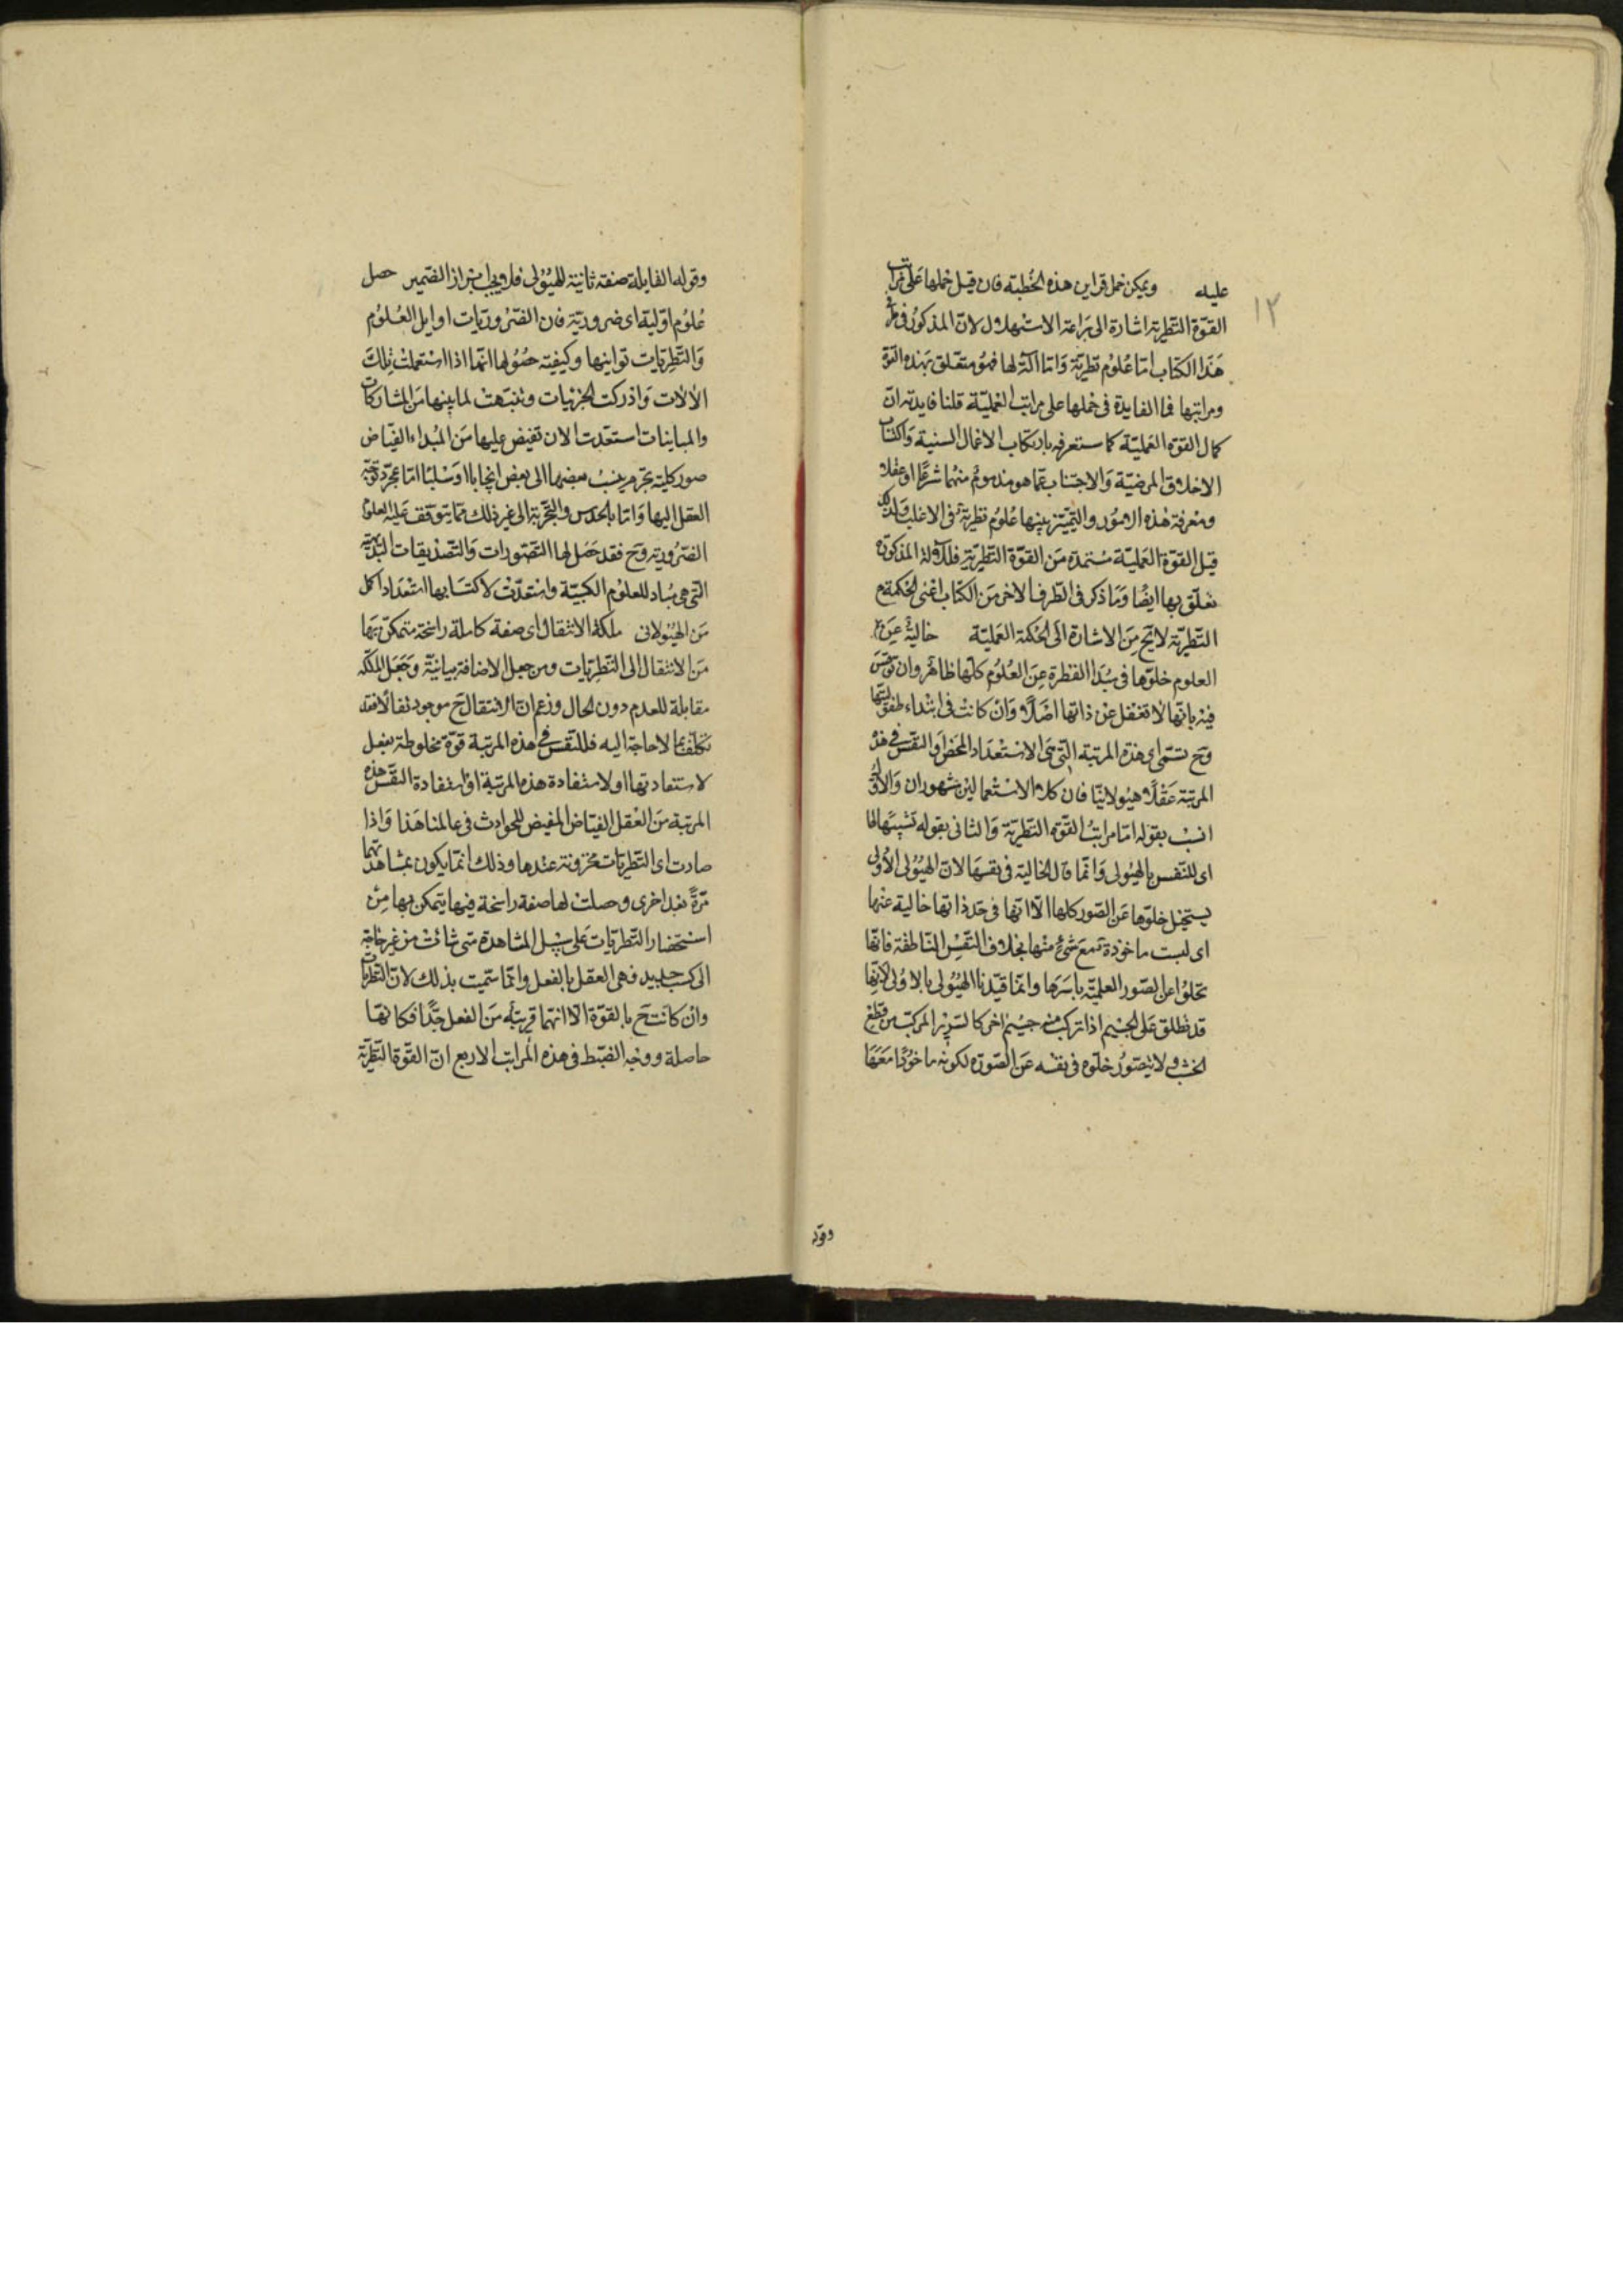 ١٢
عليه ويمكن حمل قراين هذه الخطبة فان قيل حملها على مراتب
القوة النظرية اشارة الى براعة الاستهلال لان المذكور في
هذا الكتاب اما علوم نظرية واما آلة لها فهو متعلق بهذه القوة
ومراتبها فما الفايدة في حملها على مراتب العملية قلنا فايدته ان
كمال القوة العملية كما ستعرفه بارتكاب الاعمال السنية واكتساب
الاخلاق المرضية والاجتناب عما هو مذموم منهما شرعا او عقلا
ومعرفة هذه الامور والتمييز بينها علوم نظرية في الاغلب ولذلك
قيل القوة العملية مستمدة من القوة النظرية فللآلة المذكورة
تعلق بها ايضا وما ذكر في الطرف الاخر من الكتاب اعنى الحكمة
النظرية لا يخ من الاشارة الى الحكمة العملية خالية عن
العلوم خلوها في مبدا الفطرة عن العلوم كلها ظاهر وان نوقش
فيه بانها لا تغفل عن ذاتها اصلا وان كانت في ابتداء طفوليتها
وح تسمى اى هذه المرتبة التى هى الاستعداد المحض او النفس في هذه
المرتبة عقلا هيولانيا فان كلا الاستعمالين مشهوران والاول
انسب بقوله اما مراتب القوة النظرية والثانى بقوله تشبيها لها
اى للنفس بالهيولى وانما قال الخالية في نفسها لان الهيولى الاولى
يستحيل خلوها عن الصور كلها الا انها في حد ذاتها خالية عنها
اى ليست ماخوذة مع شئ منها بخلاف النفس الناطقة فانها
تخلوا عن الصور العلمية باسرها وانما قيدنا الهيولى بالاولى لانها
قد تطلق على الجسم اذا تركب منه جسم اخر كالسرير المركب من قطع
الخشب ولا يتصور خلوه في نفسه عن الصورة لكونه ماخوذا معها
وقوله
وقوله القابلة صفة ثانية للهيولى فلا ويجب ابراز الضمير حصل
علوم اولية اى ضرورية فان الضروريات اوايل العلوم
والنظريات ثوانيها وكيفية حصولها انها اذا استعملت تلك
الآلات وادركت الجزئيات وتنبهت لما بينها من المشاركات
والمباينات استعدت لان تفيض عليها من المبداء الفياض
صور كلية تجزم بنسب بعضها الى بعض ايجابا او سلبا اما بمجرد توجه
العقل اليها واما بالحدس والتجربة الى غير ذلك مما يتوقف عليه العلوم
الضرورية وح فقد حصل لها التصورات والتصديقات البديهية
التى هى مباد للعلوم الكسبية واستعدت لاكتسابها استعدادا كمل
من الهيولانى ملكة الانتقال اى صفة كاملة راسخة متمكن بها
من الانتقال الى النظريات ومن جعل الاضافة بيانية وجعل الملكة
مقابلة للعدم دون الحال وزعم ان الانتقال ح موجود فقد
تكلف بما لا حاجة اليه فللنفس في هذه المرتبة قوة مخلوطة بفعل
لاستفادتها او لاستفادة هذه المرتبة او استفادة النفس هذه
المرتبة من العقل الفياض المفيض للحوادث في عالمنا هذا واذا
صارت اى النظريات مخزونة عندها وذلك انما يكون بمشاهدتها
مرة بعد اخرى وحصلت لها صفة راسخة فيها يتمكن بها من
استحضار النظريات على سبيل المشاهدة متى شائت من غير حاجة
الى كسب جديد فهى العقل بالفعل وانما سميت بذلك لان النظريات
وان كانت ح بالقوة الا انهما قريبة من الفعل جدا فكانها
حاصلة ووجه الضبط في هذه المراتب الاربع ان القوة النظرية